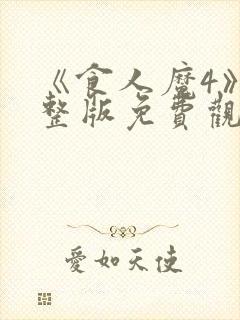 《食人魔4》
整版免費觀
愛如天使